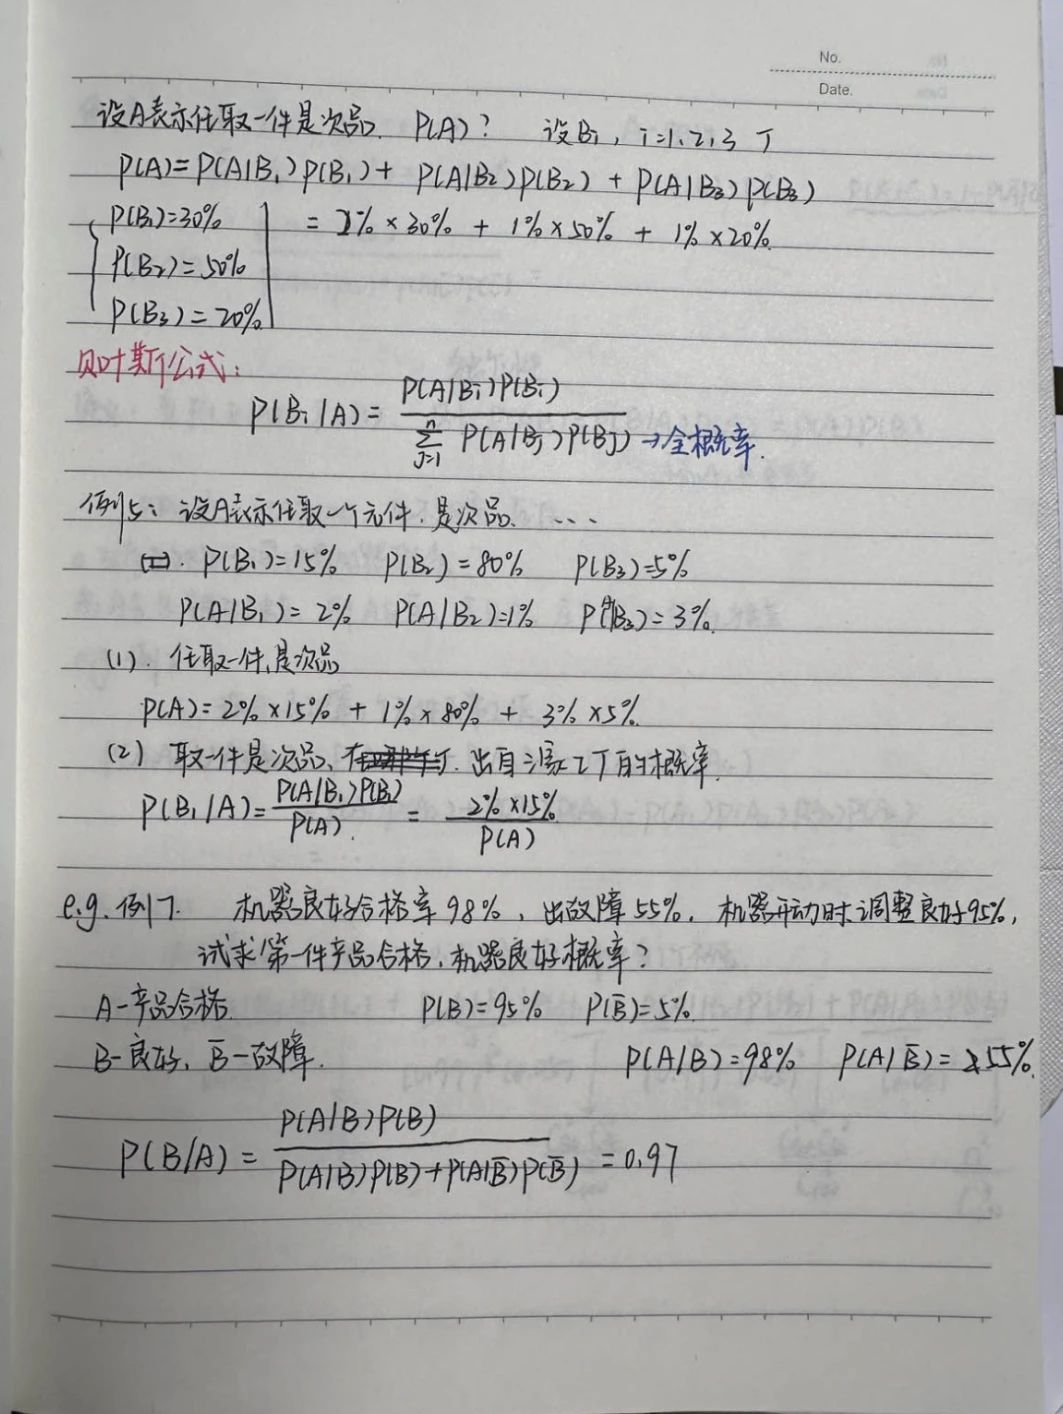 No.
Date.
设A表示任取一件是次品. P(A)? 设Bi, i=1,2,3 厂
P(A)=P(A|B₁)P(B₁)+ P(A|B₂)P(B₂) + P(A|B₃)P(B₃)
P(B₁)=30% = 2% × 30% + 1% × 50% + 1% × 20%.
P(B₂)=50%
P(B₃)=20%
贝叶斯公式:
P(Bi|A) = P(A|Bi)P(Bi) / ∑ⁿⱼ₌₁ P(A|Bj)P(Bj) → 全概率.
例5: 设A表示任取一个元件.是次品. ...
P(B₁)=15% P(B₂)=80% P(B₃)=5%
P(A|B₁)=2% P(A|B₂)=1% P(A|B₃)=3%.
(1). 任取一件,是次品
P(A)=2%×15% + 1%×80% + 3%×5%.
(2) 取一件是次品、出自 厂的概率.
P(B₁|A)= P(A|B₁)P(B₁) / P(A). = 2%×15% / P(A)
e.g. 例7. 机器良好合格率98%, 出故障55%. 机器开动时调整良好95%,
试求第一件产品合格,机器良好概率?
A-产品合格. P(B)=95% P(B̄)=5%.
B-良好, B̄-故障. P(A|B)=98% P(A|B̄)=55%.
P(B|A) = P(A|B)P(B) / P(A|B)P(B)+P(A|B̄)P(B̄) = 0.97